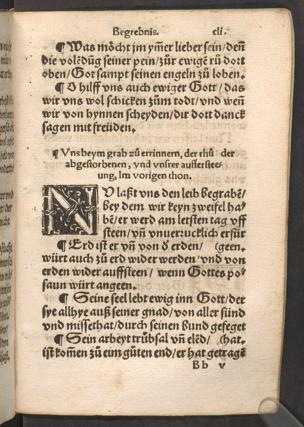 Begrebnis. cli.
¶ Was mȯcht jm ym̃er lieber sein / deñ
die volẽdũg seiner pein / zůr ewigẽ rů dort
oben / Got sampt seinen engeln zů loben.
¶ O hilff vns auch ewiger Gott / das
wir vns wol schicken zům todt / vnd weñ
wir von hynnen scheyden / dir dort danck
sagen mit freüden.
¶ Vns beym grab zů errinnern, der rhů der
abgestorbenen, vnd vnser aufferstee-
ung, Im vorigen thon.
NU laßt vns den leib begrabẽ /
bey dem wir keyn zweifel ha-
bẽ / er werd am letsten tag vff
steen / vñ vnuerrucklich erfür
¶ Erd ist er vñ von d erden / (geen.
würt auch zů erd wider werden / vnd von
erden wider auffsteen / wenn Gottes po-
saun würt angeen.
¶ Seine seel lebt ewig inn Gott / der
sye allhye auß seiner gnad / von aller sünd
vnd missethat / durch seinen bund gefeget
¶ Sein arbeyt trübsal vñ elẽd / (hat.
ist kom̃en zů eim gůten end / er hat getragẽ
B b v